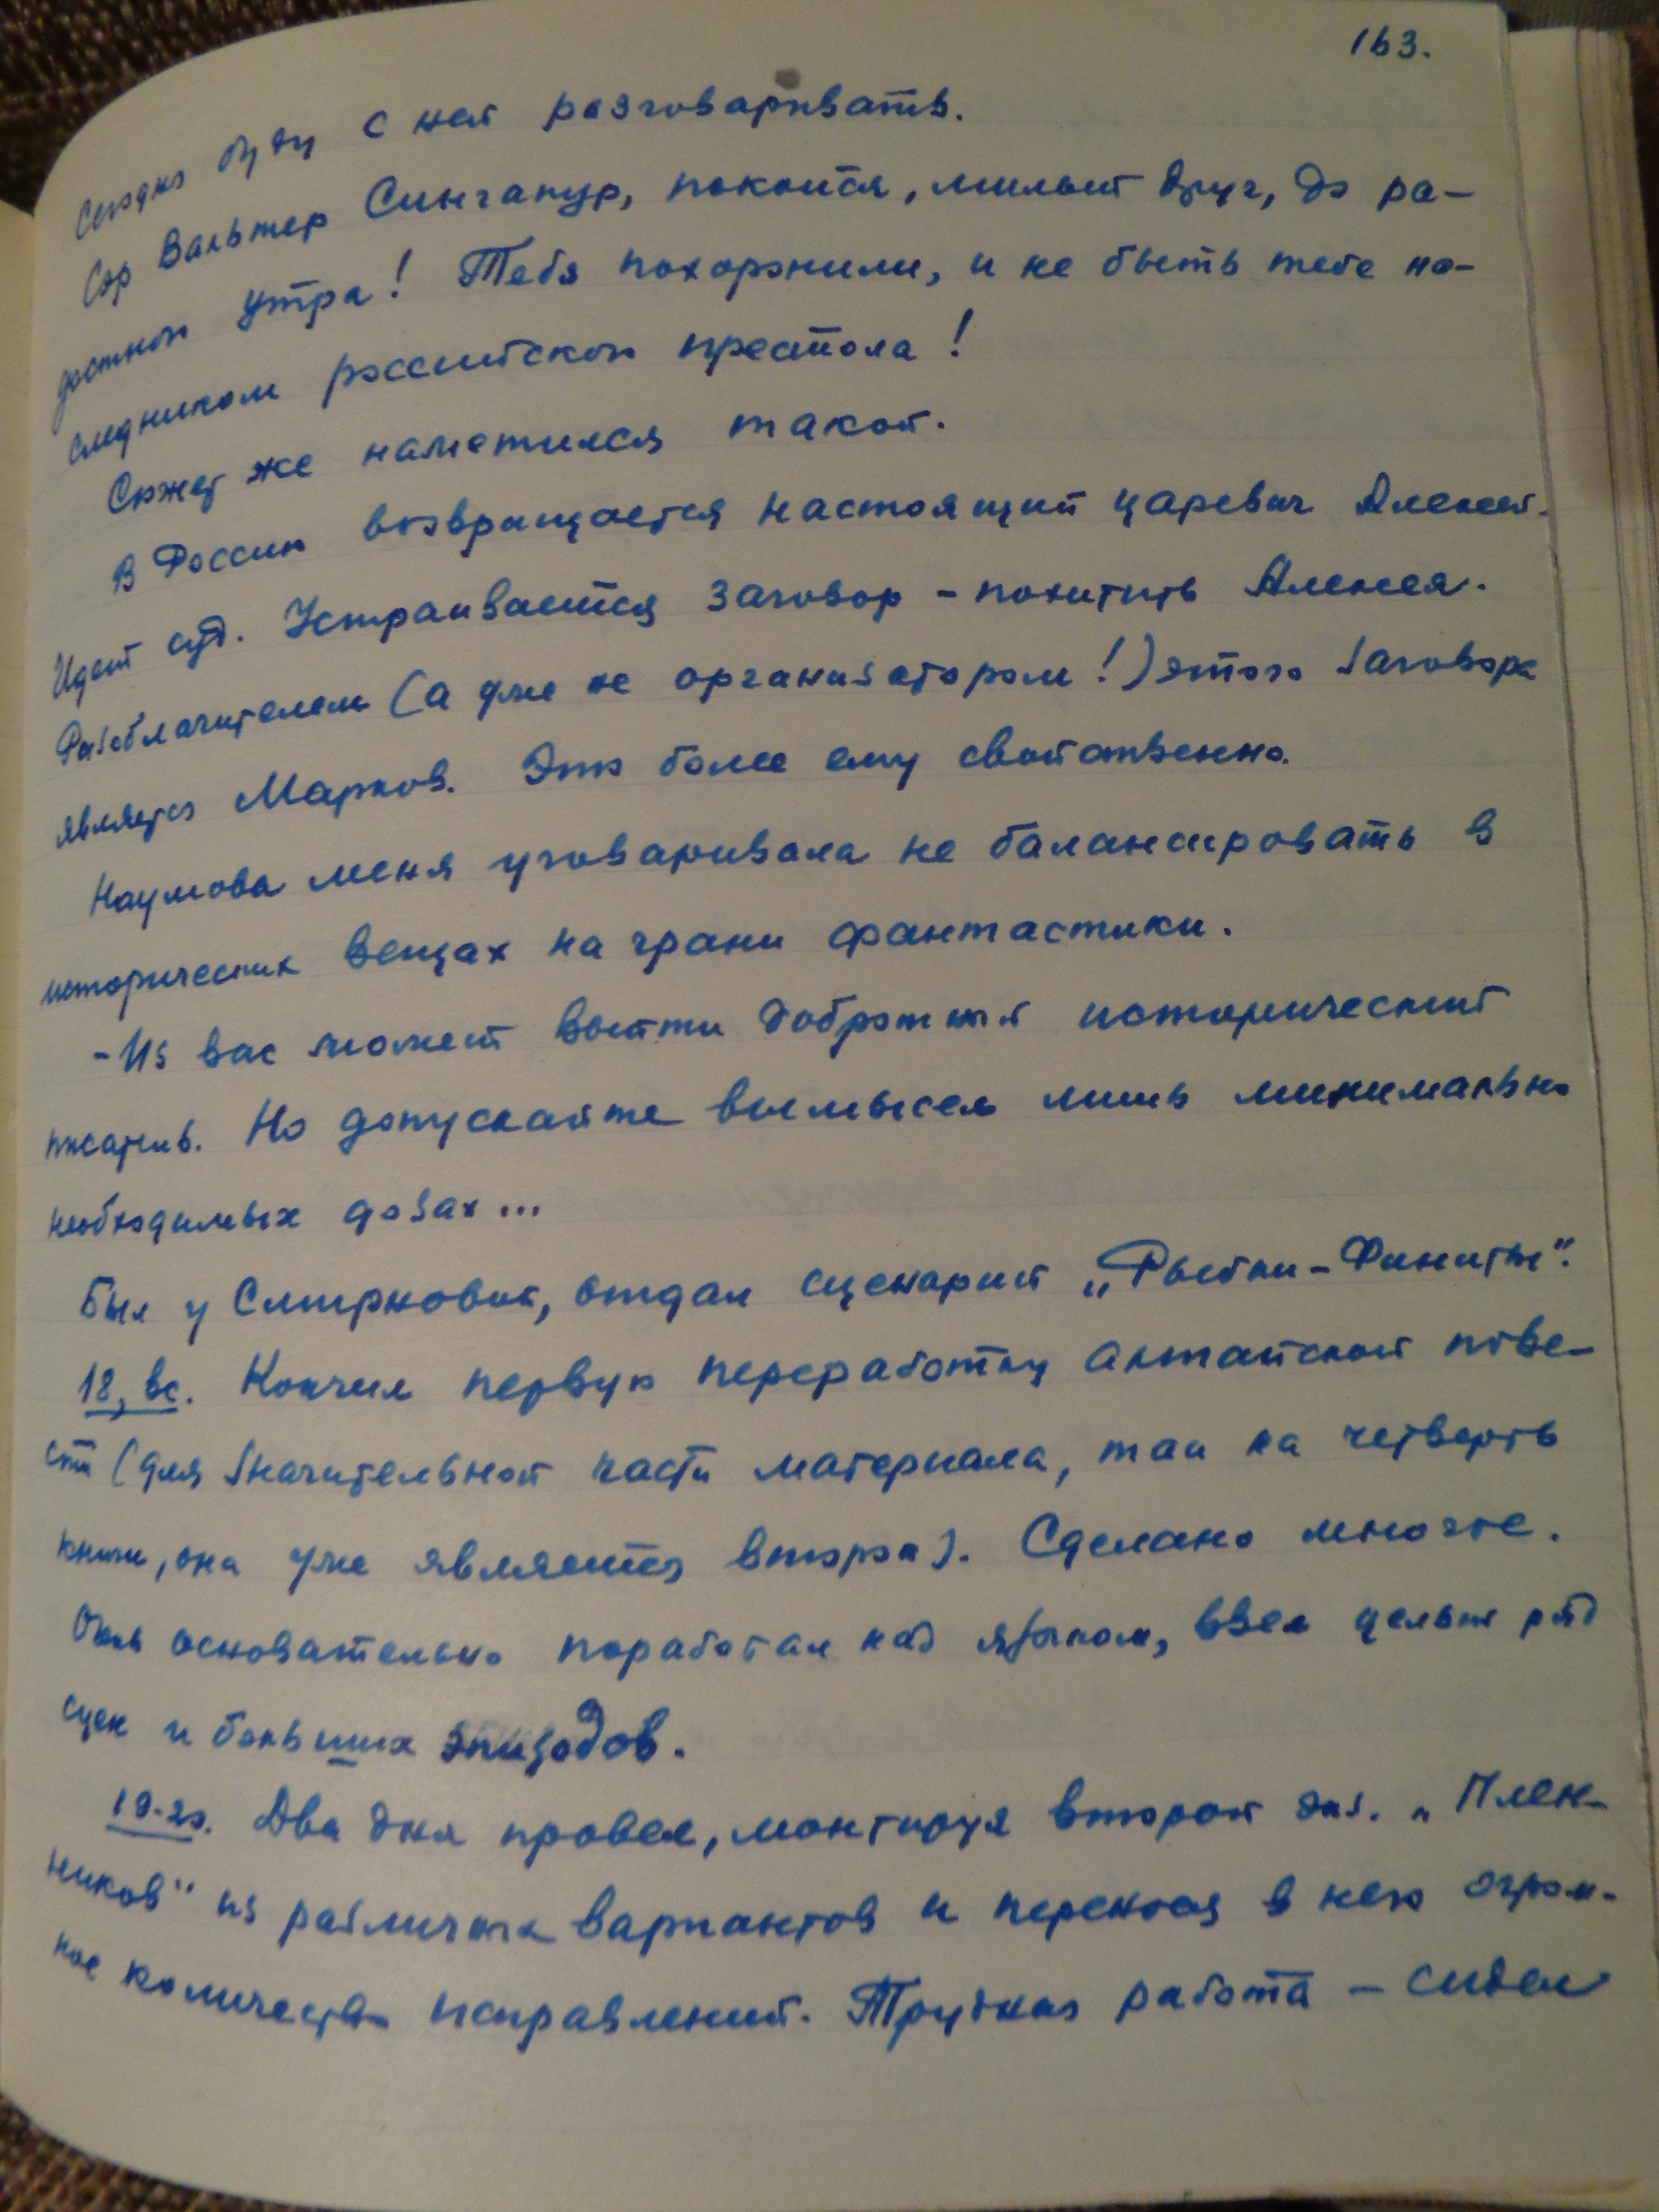 163.
Сегодня буду с ней разговаривать.
Сэр Вальтер Сингапур, покойся, милый друг, до ра-
достного утра! Тебя похоронили, и не быть тебе на-
следником российского престола!
Сюжет же наметился такой.
В Россию возвращается настоящий царевич Алексей.
Идет суд. Устраивается заговор - похитить Алексея.
Разоблачителем (а уже не организатором!) этого заговора
является Марков. Это более ему свойственно.
Наумова меня уговаривала не балансировать в
исторических вещах на грани фантастики.
- Из вас может выйти добротный исторический
писатель. Но допускайте вымысел лишь минимально
необходимых дозах...
Был у Смирновой, отдал сценарий „Рыбки-Финиты".
18, вс. Кончил первую переработку алтайской пове-
сти (для значительной части материала, так на четверть
книги, она уже является второй). Сделано многое.
Очень основательно поработал над языком, ввел целый ряд
сцен и больших эпизодов.
19-20. Два дня провел, монтируя второй экз. „Плен-
ников" из различных вариантов и перенося в него огром-
ное количество исправлений. Трудная работа - сидел